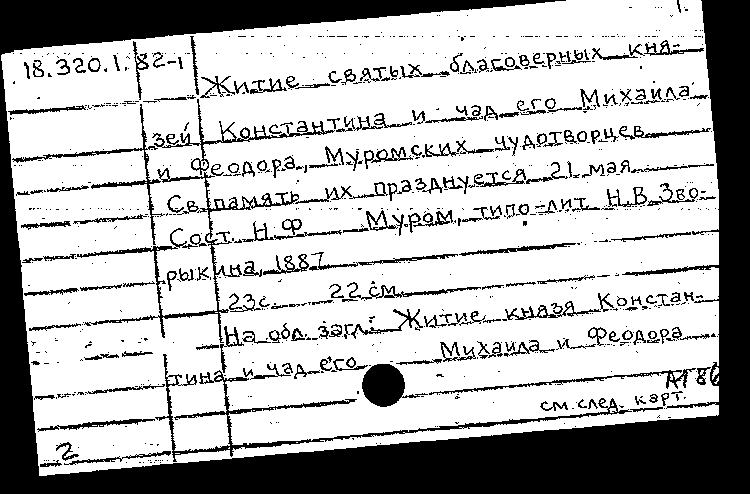 1.
18.320.1.82-1
Житие святых благоверных кня-
зей Константина и чад его Михаила
и Феодора, Муромских чудотворцев
Св. память их празднуется 21 мая
Сост. Н.Ф Муром, типо-лит. Н.В.Зво-
рыкина, 1887
23с. 22 см.
На обл. загл: Житие князя Констан-
тина и чад его Михаила и Феодора
А1 86
см.след. карт.
2